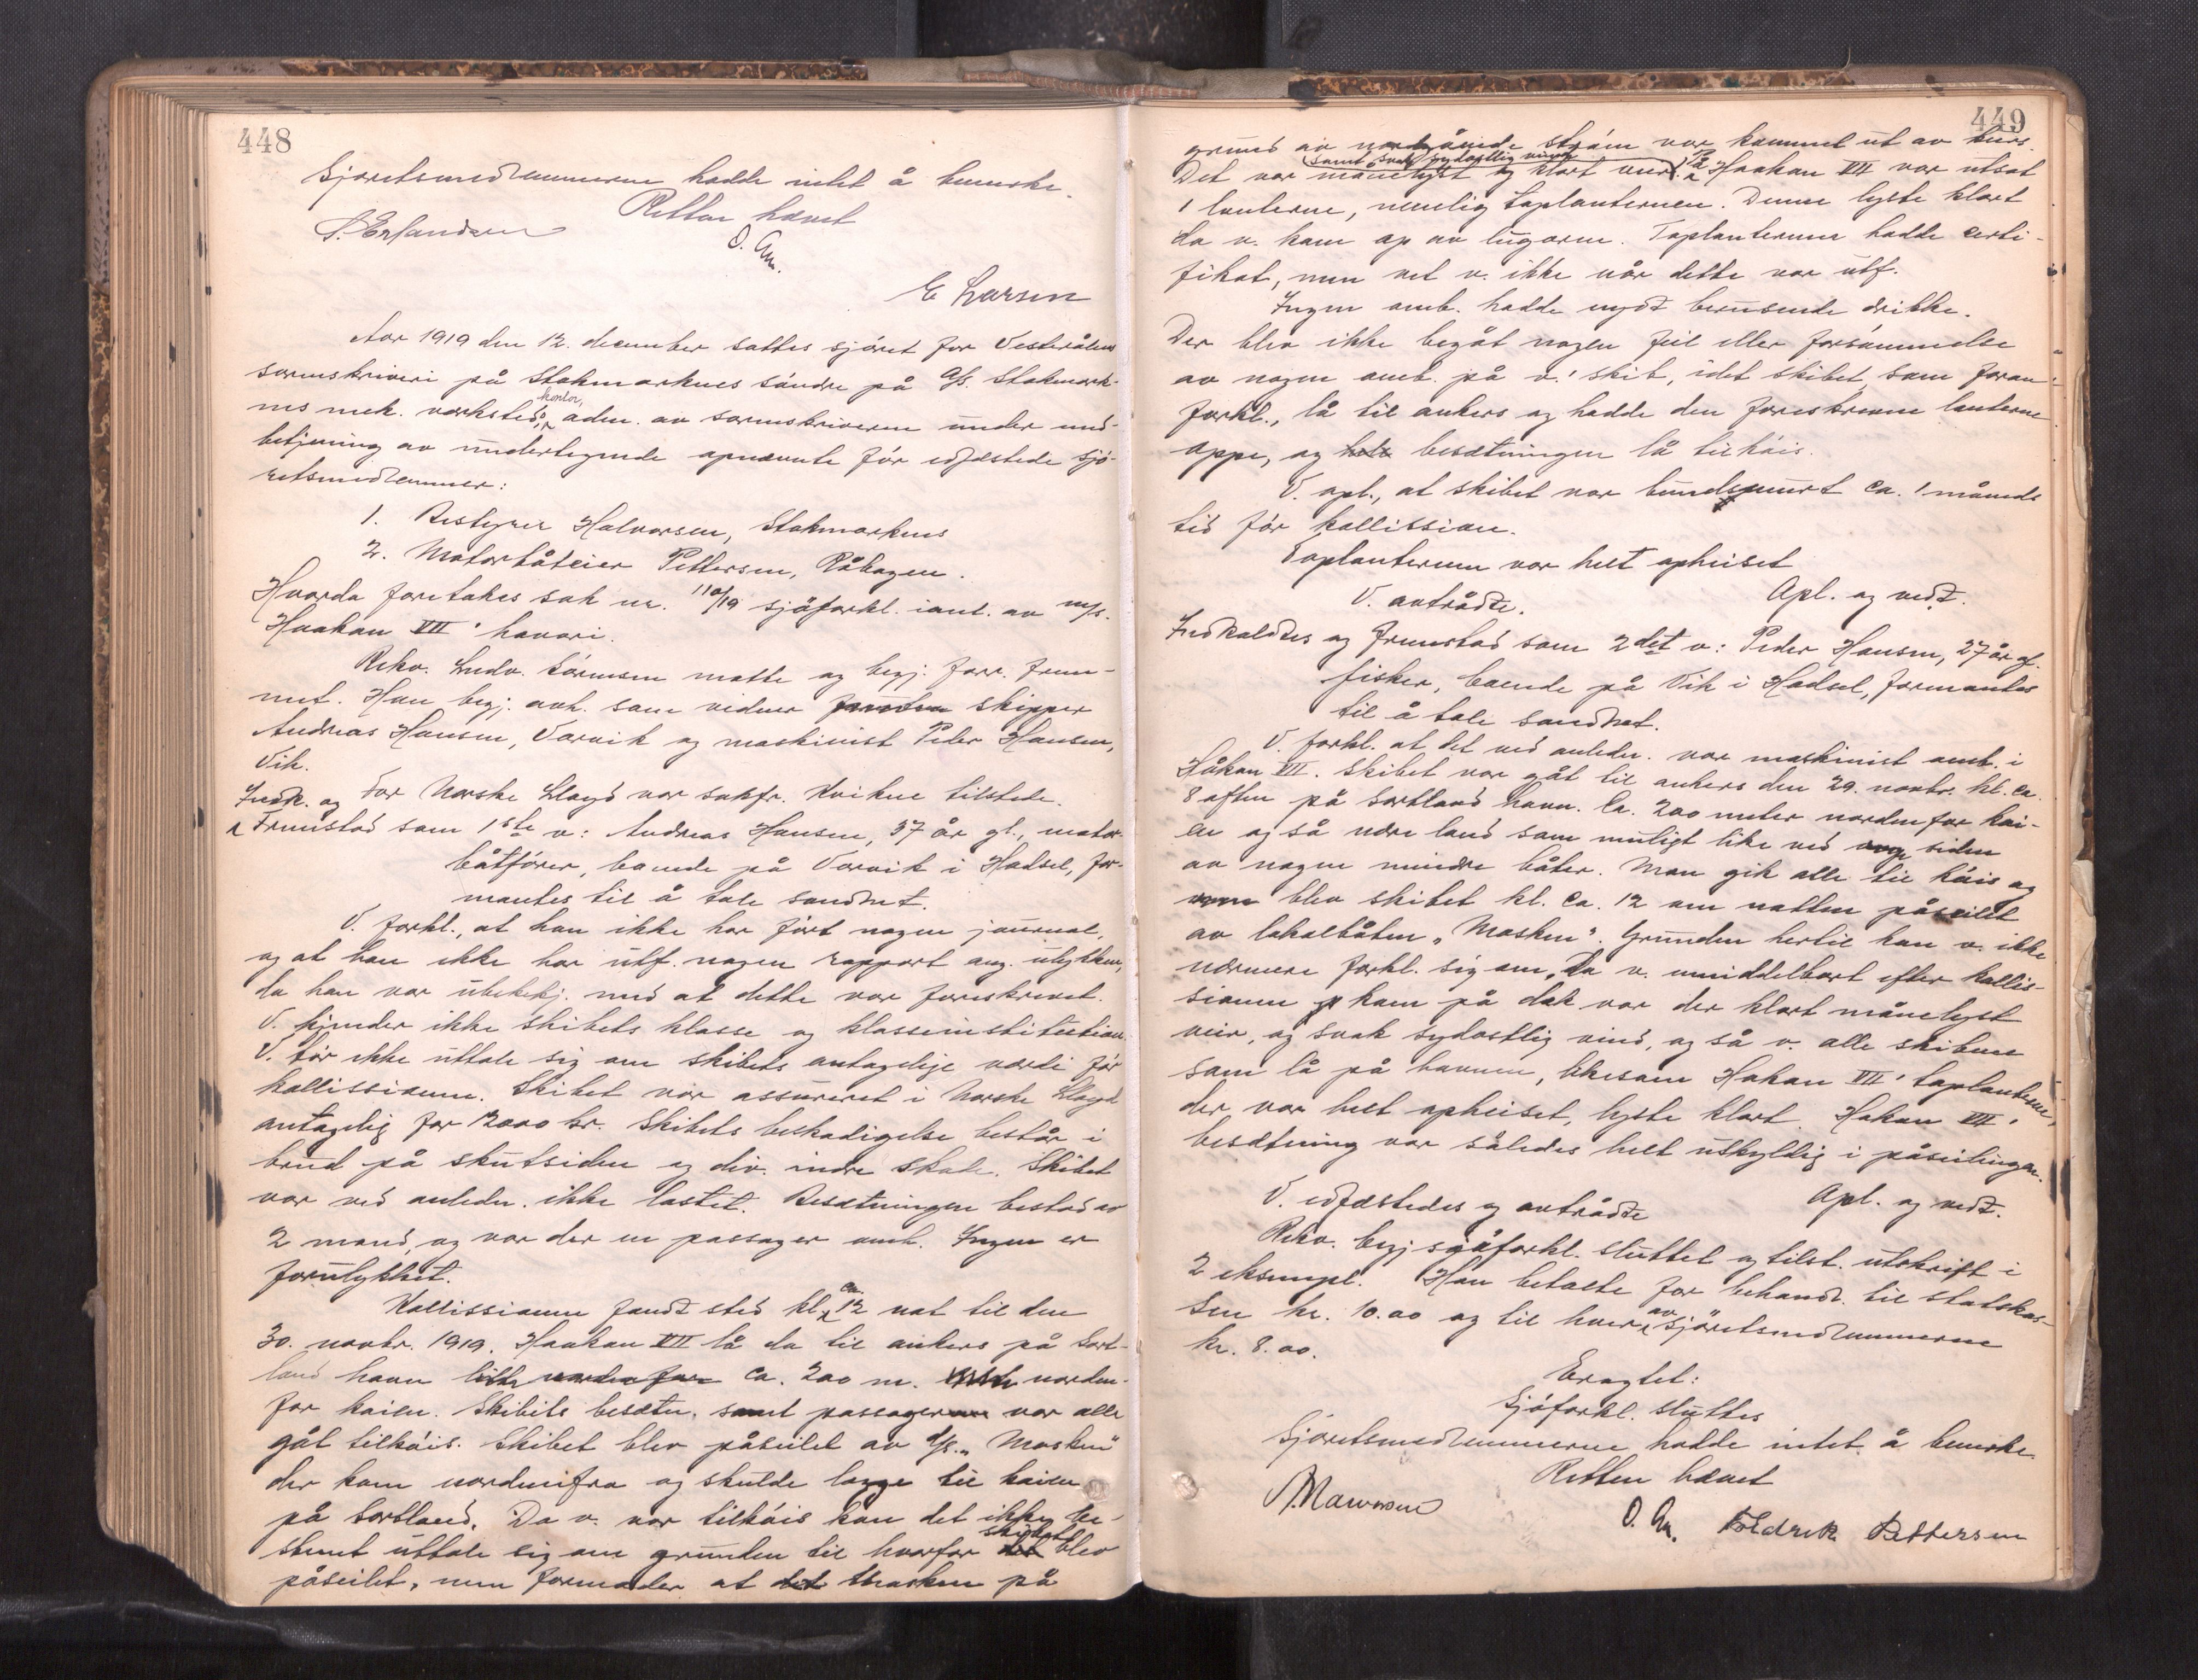 448
Sjøretsmedlemmerne hadde intet å bemerke.
Retten hævet
S. Erlandsen
O. Am.
E Larsen
Aar 1919 den 12. december sattes sjöret for Vesterålens
sorenskriveri på Stokmarknes söndre på A/s. Stokmark-
nes mek. verksteds kontor, adm. av sorenskriveren under med-
betjening av undertegnede opnævnte för edfæstede sjö-
retsmedlemmer:
1. Bestyrer Halvorsen, Stokmarknes
2. Motorbåteier Pettersen, Råhagen.
Hvorda foretakes sak nr. 110/19 sjöforkl. i anl. av m/s.
Haakon VII' havari.
Rekv. Ludv. Sörensen mötte og begj. forr. frem-
met. Han begj. avh. som vidner skipper
Andreas Hansen, Vorvik og maskinist Peder Hansen,
Vik.
For Norske Lloyd var sakfr. Kvikne tilstede.
Indk. og
Fremstod som 1ste v: Andreas Hansen, 37 år gl., motor-
båtförer, boende på Vorvik i Hadsel, for-
mantes til å tale sandhet.
V. forkl., at han ikke har fört nogen journal,
og at han ikke har utf. nogen rapport ang. ulykken,
da han var ubekekj. med at dette var foreskrevet.
V. kjender ikke skibets klasse og klasseinstitution
V. tör ikke uttale sig om skibets antagelige værdi för
kollissionen. Skibet var assureret i Norske Lloyd
antagelig for 12000 kr. Skibets beskadigelse består i
brud på skutsiden og div. indre skade. Skibet
var ved anledn. ikke lastet. Besætningen bestod av
2 mand, og var der en passager omb. Ingen er
forulykket.
Kollissionen fandt sted kl. ca. 12 nat til den
30. novbr. 1919. Haakon VII lå da til ankers på Sort-
land havn litt norden for ca. 200 m. norden-
for kaien. Skibets besætn. samt passageren var alle
gåt tilköis. Skibet blev påseilet av D/s. "Mosken"
der kom nordenifra og skulde lægge til kaien
på Sortland. Da v. var tilköis kan det ikke be-
stemt uttale sig om grunden til hvorfor det skibet blev
påseilet, men formoder at det Mosken på
449
grund av nordgående ström var kommet ut av kurs.
samt svak sydostlig vind
Det var månelyst og klart veir. På Haakon VII var utsat
1 lanterne, nemlig toplanternen. Denne lyste klart
da v. kom op av lugaren. Toplanternen hadde certi-
fikat, men vet v. ikke når dette var utf.
Ingen omb. hadde nydt berusende drikke.
Der blev ikke begåt nogen feil eller forsömmelse
av nogen omb. på v.' skib, idet skibet, som foran
forkl., lå til ankers og hadde den foreskrevne lanterne
oppe, og hele besætningen lå tilköis.
V. opl., at skibet var bundsmurt ca. 1 måneds
tid för kollission.
Toplanternen var helt opheiset
Opl. og vedt.
V. avtrådte.
Indkaldtes og fremstod som 2det v: Peder Hansen, 27 år gl.
fisker, boende på Vik i Hadsel, formantes
til å tale sandhet.
V. forkl. at det ved anledn. var maskinist omb. i
Håkon VII. Skibet var gåt til ankers den 29. novbr. kl. ca.
8 aften på Sortland havn. Ca. 200 meter norden for kai-
en og så nære land som muligt like ved siden
av nogen mindre båter. Man gik alle til köis og
blev skibet kl. ca. 12 om natten påseilet
av lokalbåten "Mosken". Grunden hertil kan v. ikke
nærmere forkl. sig om, da v. umiddelbart efter kollis-
sionen kom på dæk var der klart månelyst
veir, og svak sydostlig vind, og så v. alle skibene
som lå på havnen, likesom Hakon VII' toplanterne,
der var helt opheiset, lyste klart. Hakon VII'
besætning var således helt utskyldig i påseilingen.
V. edfæstedes og avtrådte
Opl. og vedt.
Rekv. begj sjöforkl. sluttet og tilst. utskrift i
2 eksempl. Han betalte for behandl. til statskas-
sen kr. 10.00 og til hver av sjöretsmedlemmerne
kr. 8.00.
Eragtet:
Sjöforkl. sluttes
Sjøretsmedlemmerne hadde intet å bemerke.
Retten hævet
O. Am. Fredrik Pettersen